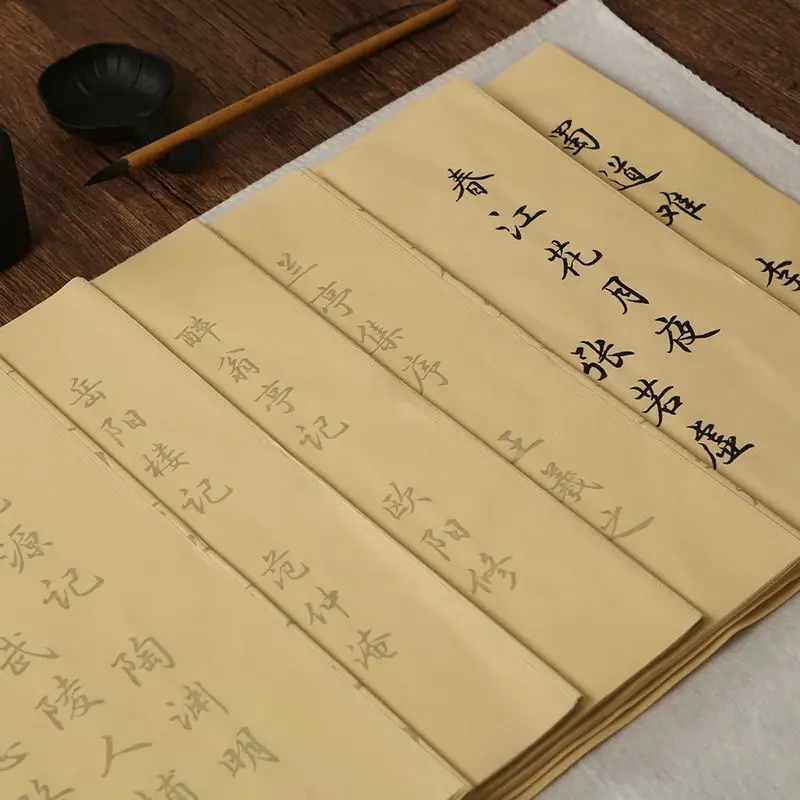 蜀道难 李
春江花月夜
张若虚
兰亭集序 王羲之
醉翁亭记 欧阳修
岳阳楼记 范仲淹
源记 陶渊明
武陵人捕